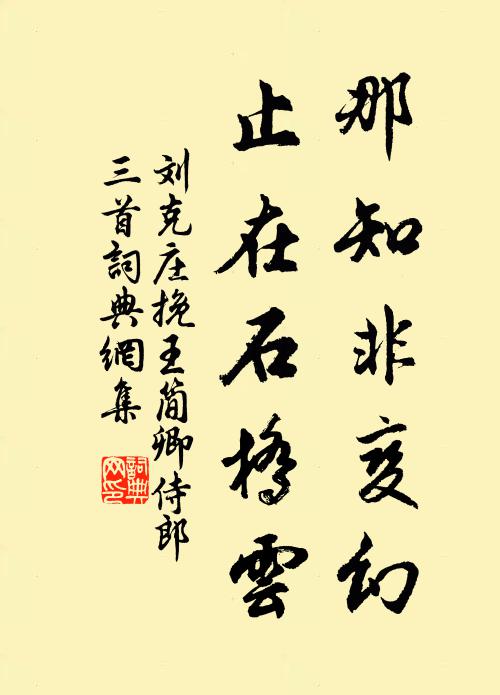 那知非变幻
止在石橋雲
刘克庄挽王简卿侍郎
三首詞典網集
詞典網印